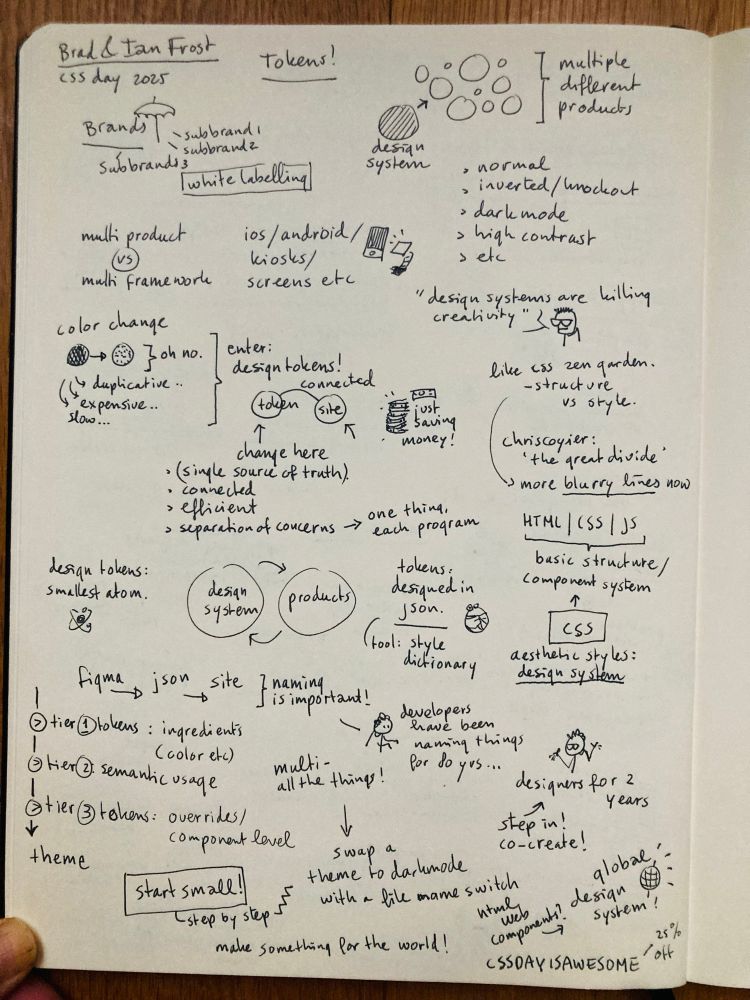 Brad & Ian Frost
CSS day 2025
Tokens!
multiple
different
products
design
system
Brands
subbrand1
subbrand2
Subbrands3
white labelling
> normal
> inverted/knockout
> darkmode
> high contrast
> etc
multi product
vs
multi framework
ios/android/
kiosks/
screens etc
"design systems are killing
creativity"
color change
oh no.
duplicative..
expensive..
slow...
enter:
design tokens!
connected
token
site
just
saving
money!
change here
> (single source of truth)
> connected
> efficient
> separation of concerns → one thing,
each program
like css zen garden.
-structure
vs style.
chriscoyier:
'the great divide'
more blurry lines now
HTML | CSS | JS
basic structure/
component system
CSS
aesthetic styles:
design system
design tokens:
smallest atom.
design
system
products
tokens:
designed in
json.
tool: style
dictionary
figma → json → site
naming
is important!
developers
have been
naming things
for 80 yrs...
> tier 1 tokens: ingredients
(color etc)
> tier 2: semantic usage
> tier 3 tokens: overrides/
component level
theme
multi-
all the things!
swap a
theme to darkmode
with a file name switch
designers for 2
years
step in!
co-create!
start small!
step by step
make something for the world!
html
web
components?
global
design
system!
CSSDAYISAWESOME
25%
off